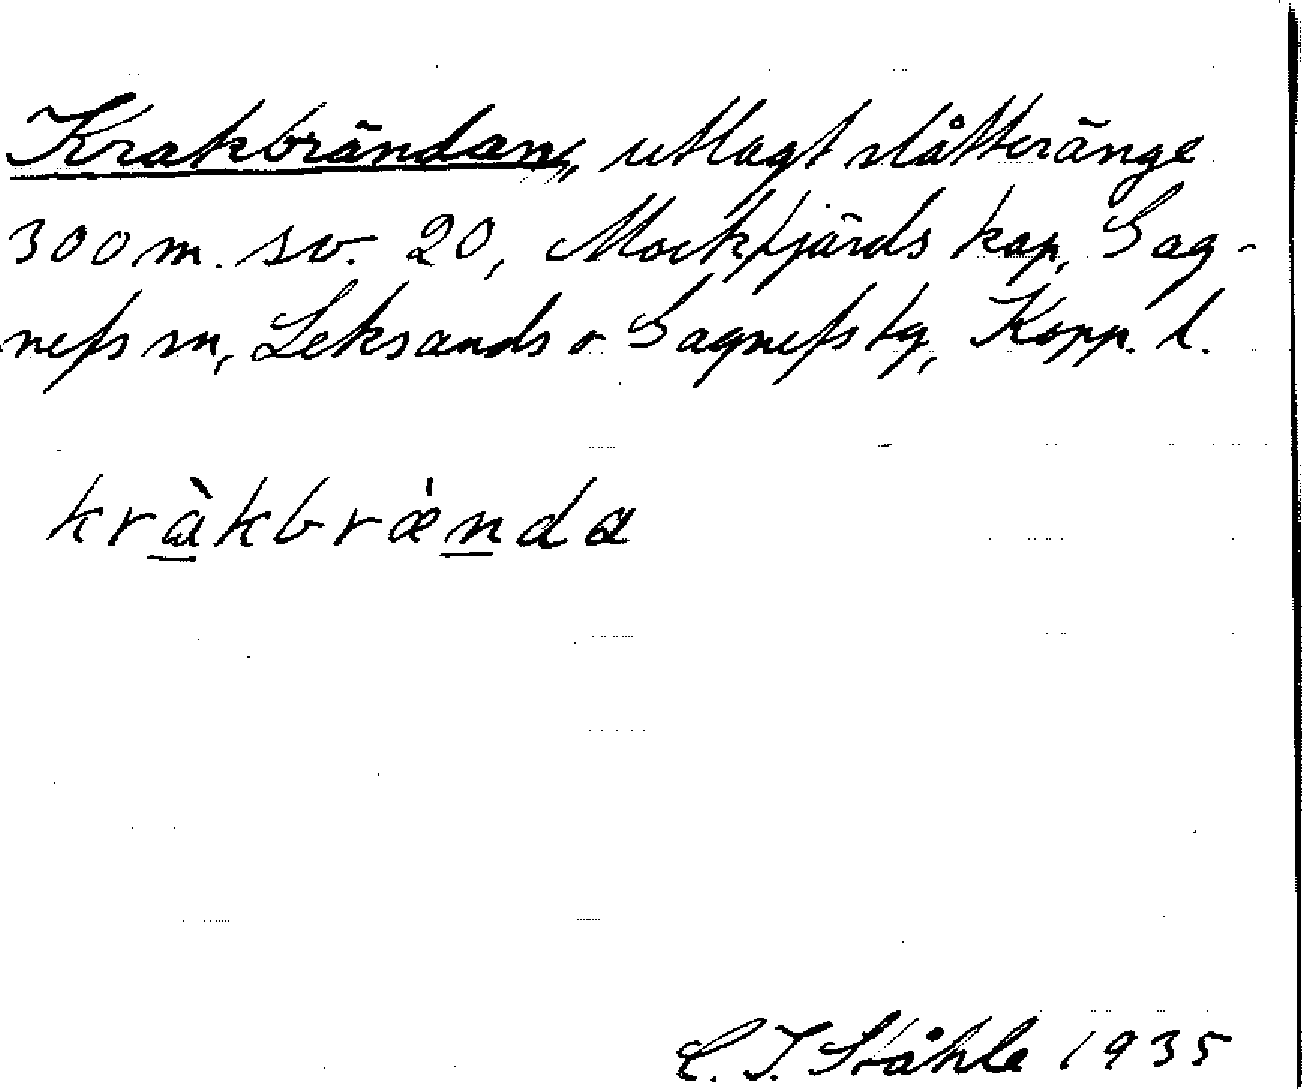 Krakbrändan, utlagt slåtteränge
300 m. sv. 20, Mockfjärds kap, Gag-
nefs sn, Leksands o Gagnefs tg, Kopp. l.
kràkbrǽnda
C. I. Ståhle 1935